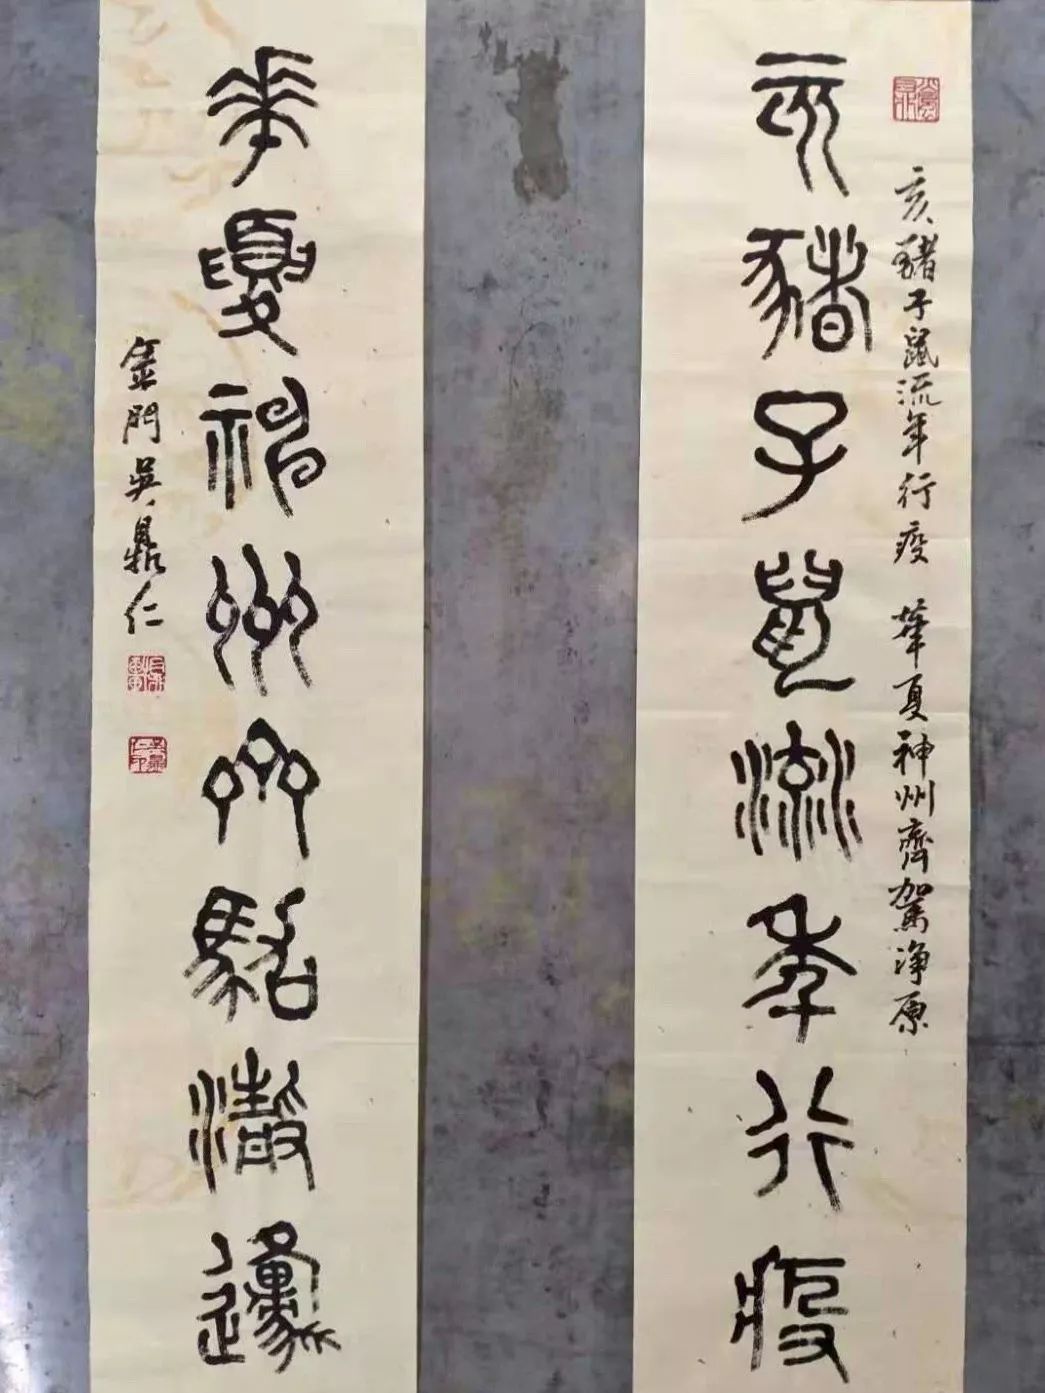 亥豬子鼠流年行疫
亥豬子鼠流年行疫 華夏神州齊駕淨原
華夏神州齊駕
金門吳鼎仁